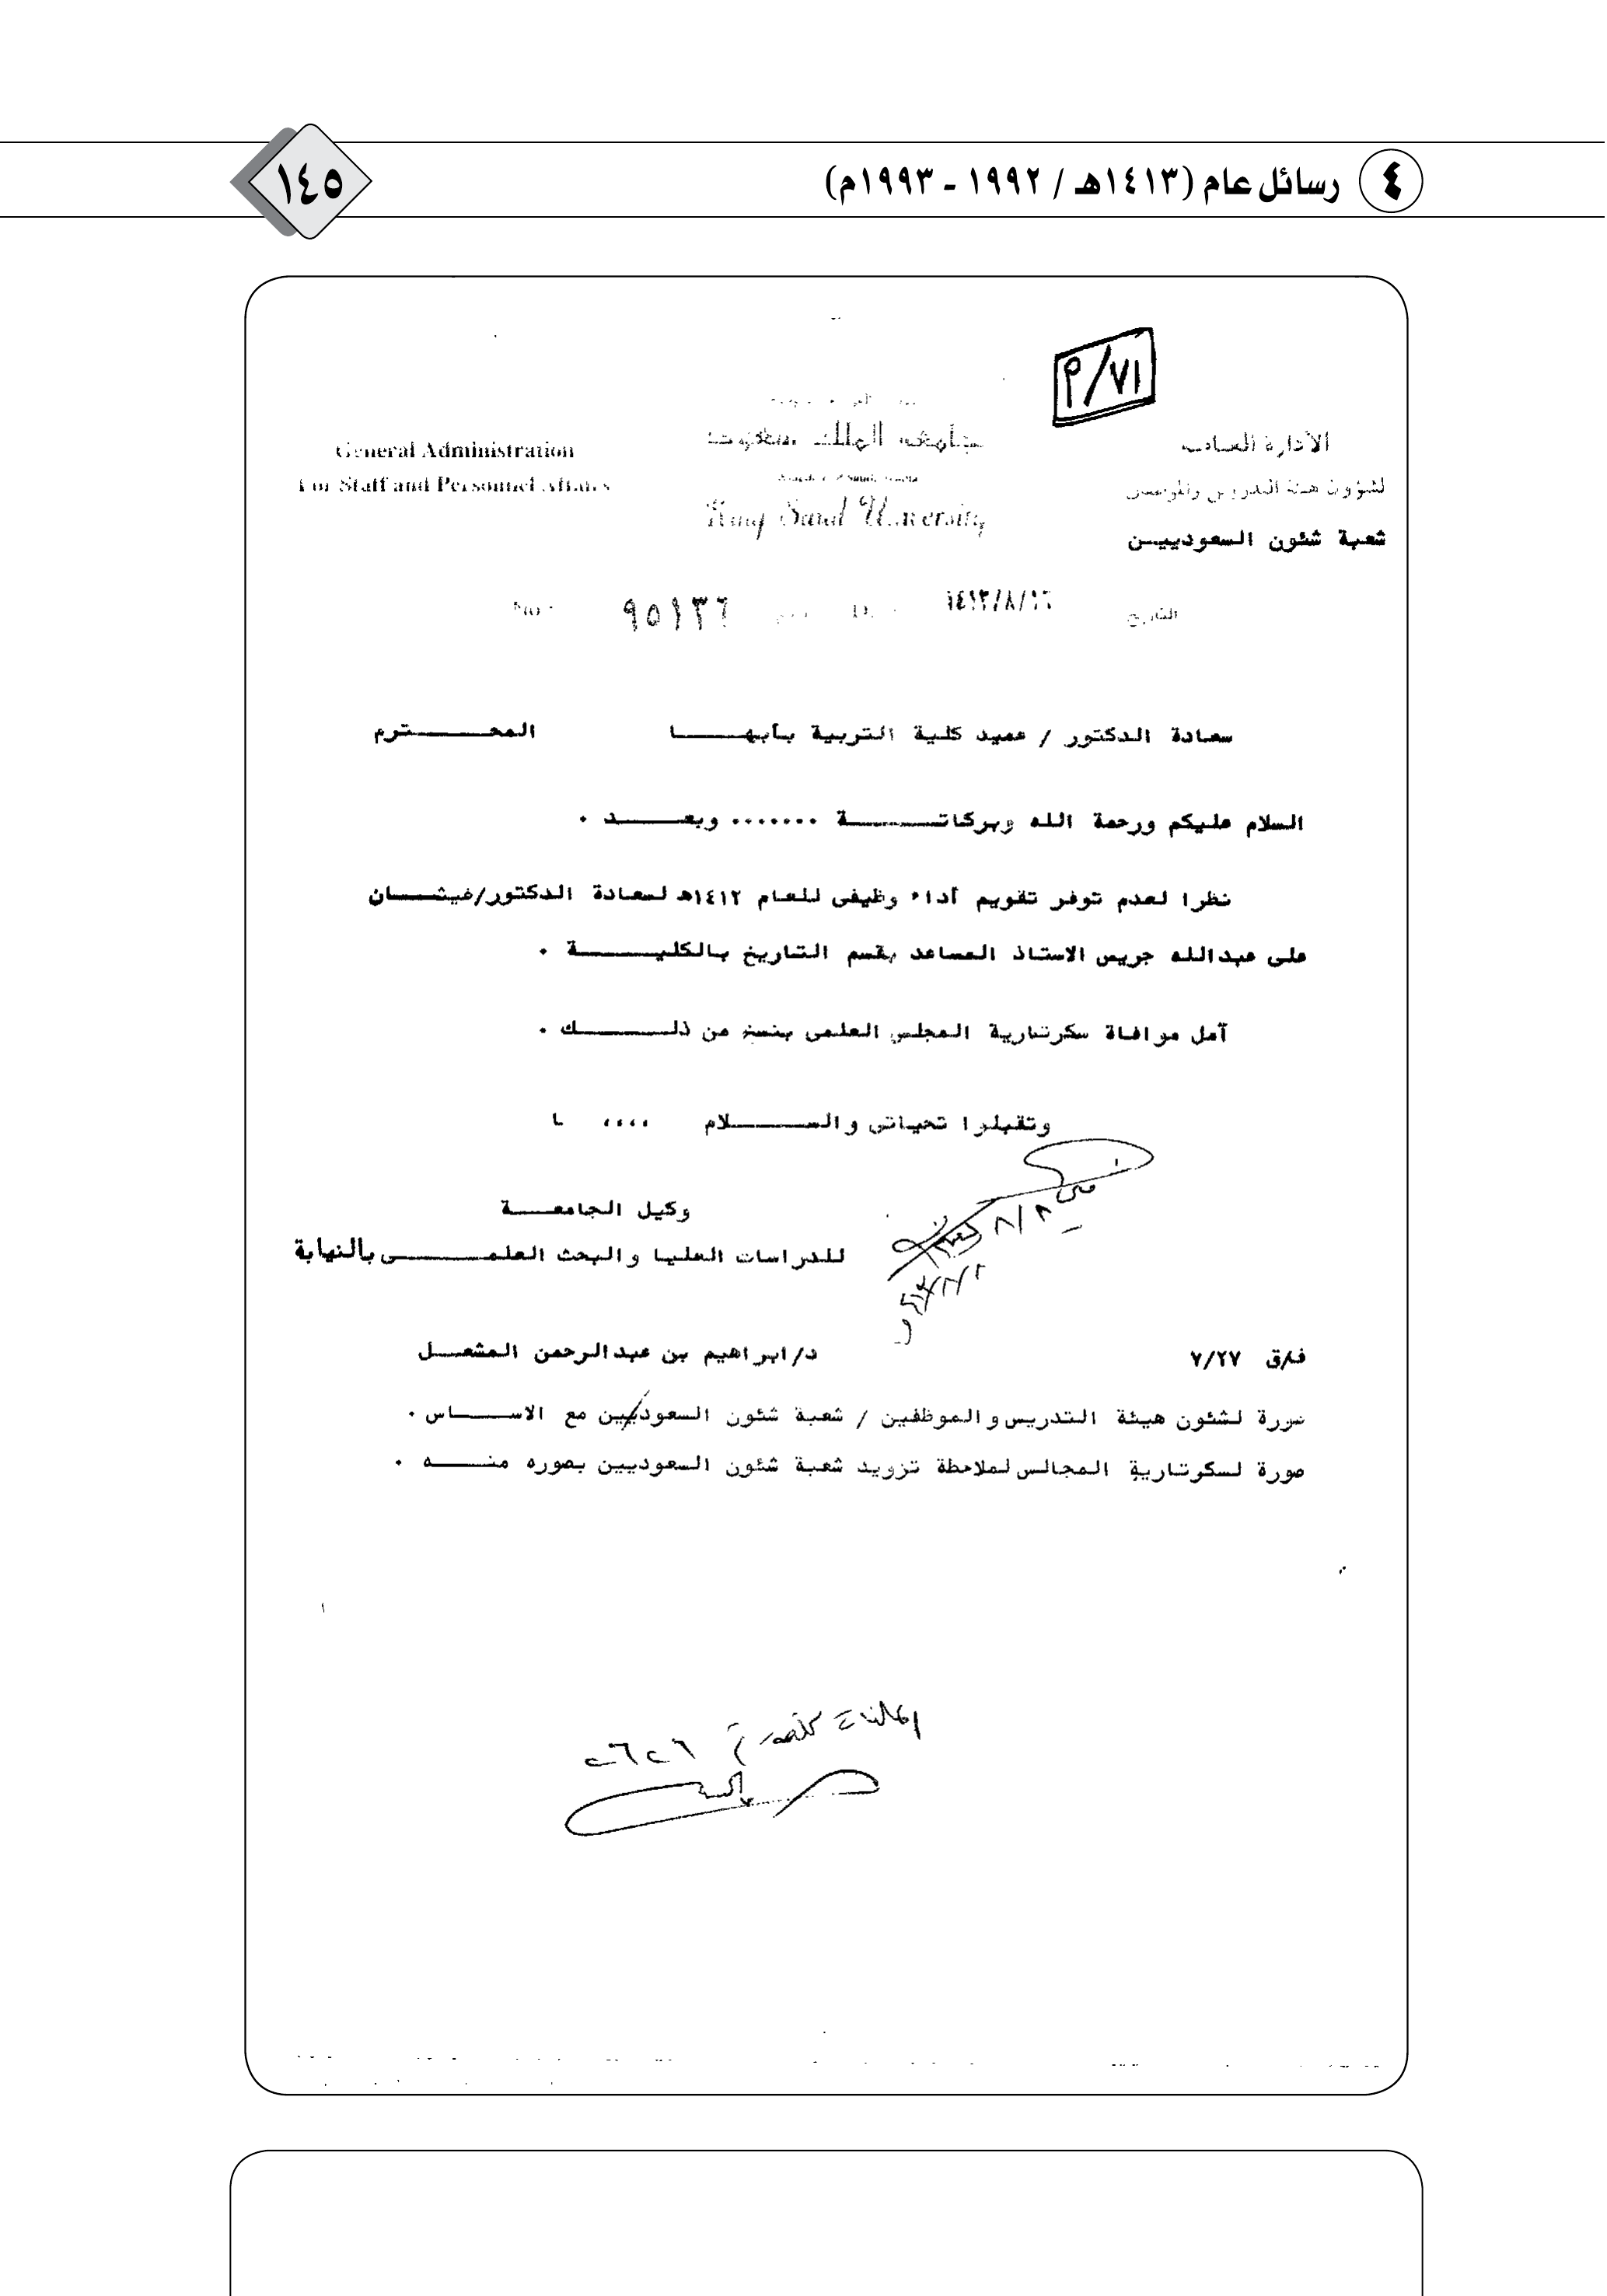 ٤ رسائل عام (١٤١٣هـ / ١٩٩٢ - ١٩٩٣م) ١٤٥
م/٧١
الأدارة العامة
لشؤون هيئة التدريس والموظفين
شعبة شئون السعودييـن
جامعة الملك سعود
King Saud University
General Administration
For Staff and Personnel Affairs
التاريخ ١٤١٣/٨/١٦ ٩٥١٣٦ No
سعادة الدكتور / عميد كلية التربية بـأبهـــــا المحــــــترم
السلام عليكم ورحمة الله وبركاتــــــــة ٠٠٠٠٠٠٠ وبعـــــــد ٠
نظرا لعدم توفر تقويم أداء وظيفى للعام ١٤١٢هـ لسعادة الدكتور/غيثـــــان
على عبدالله جريس الاستاذ المساعد بقسم التاريخ بالكليـــــــة ٠
آمل موافاة سكرتارية المجلس العلمى بنسخ من ذلـــــــــك ٠
وتقبلوا تحياتى والســـــــــلام ،،،،
وكيل الجامعــــة
للدراسات العليا والبحث العلمـــــــــــى بالنهابة
د/ابراهيم بن عبدالرحمن المشعـــل
فارق ٧/٢٧
صورة لشئون هيئة التدريس والموظفين / شعبة شئون السعوديين مع الاســـــاس ٠
صورة لسكرتارية المجالس لملاحظة تزويد شعبة شئون السعوديين بصوره منـــــه ٠